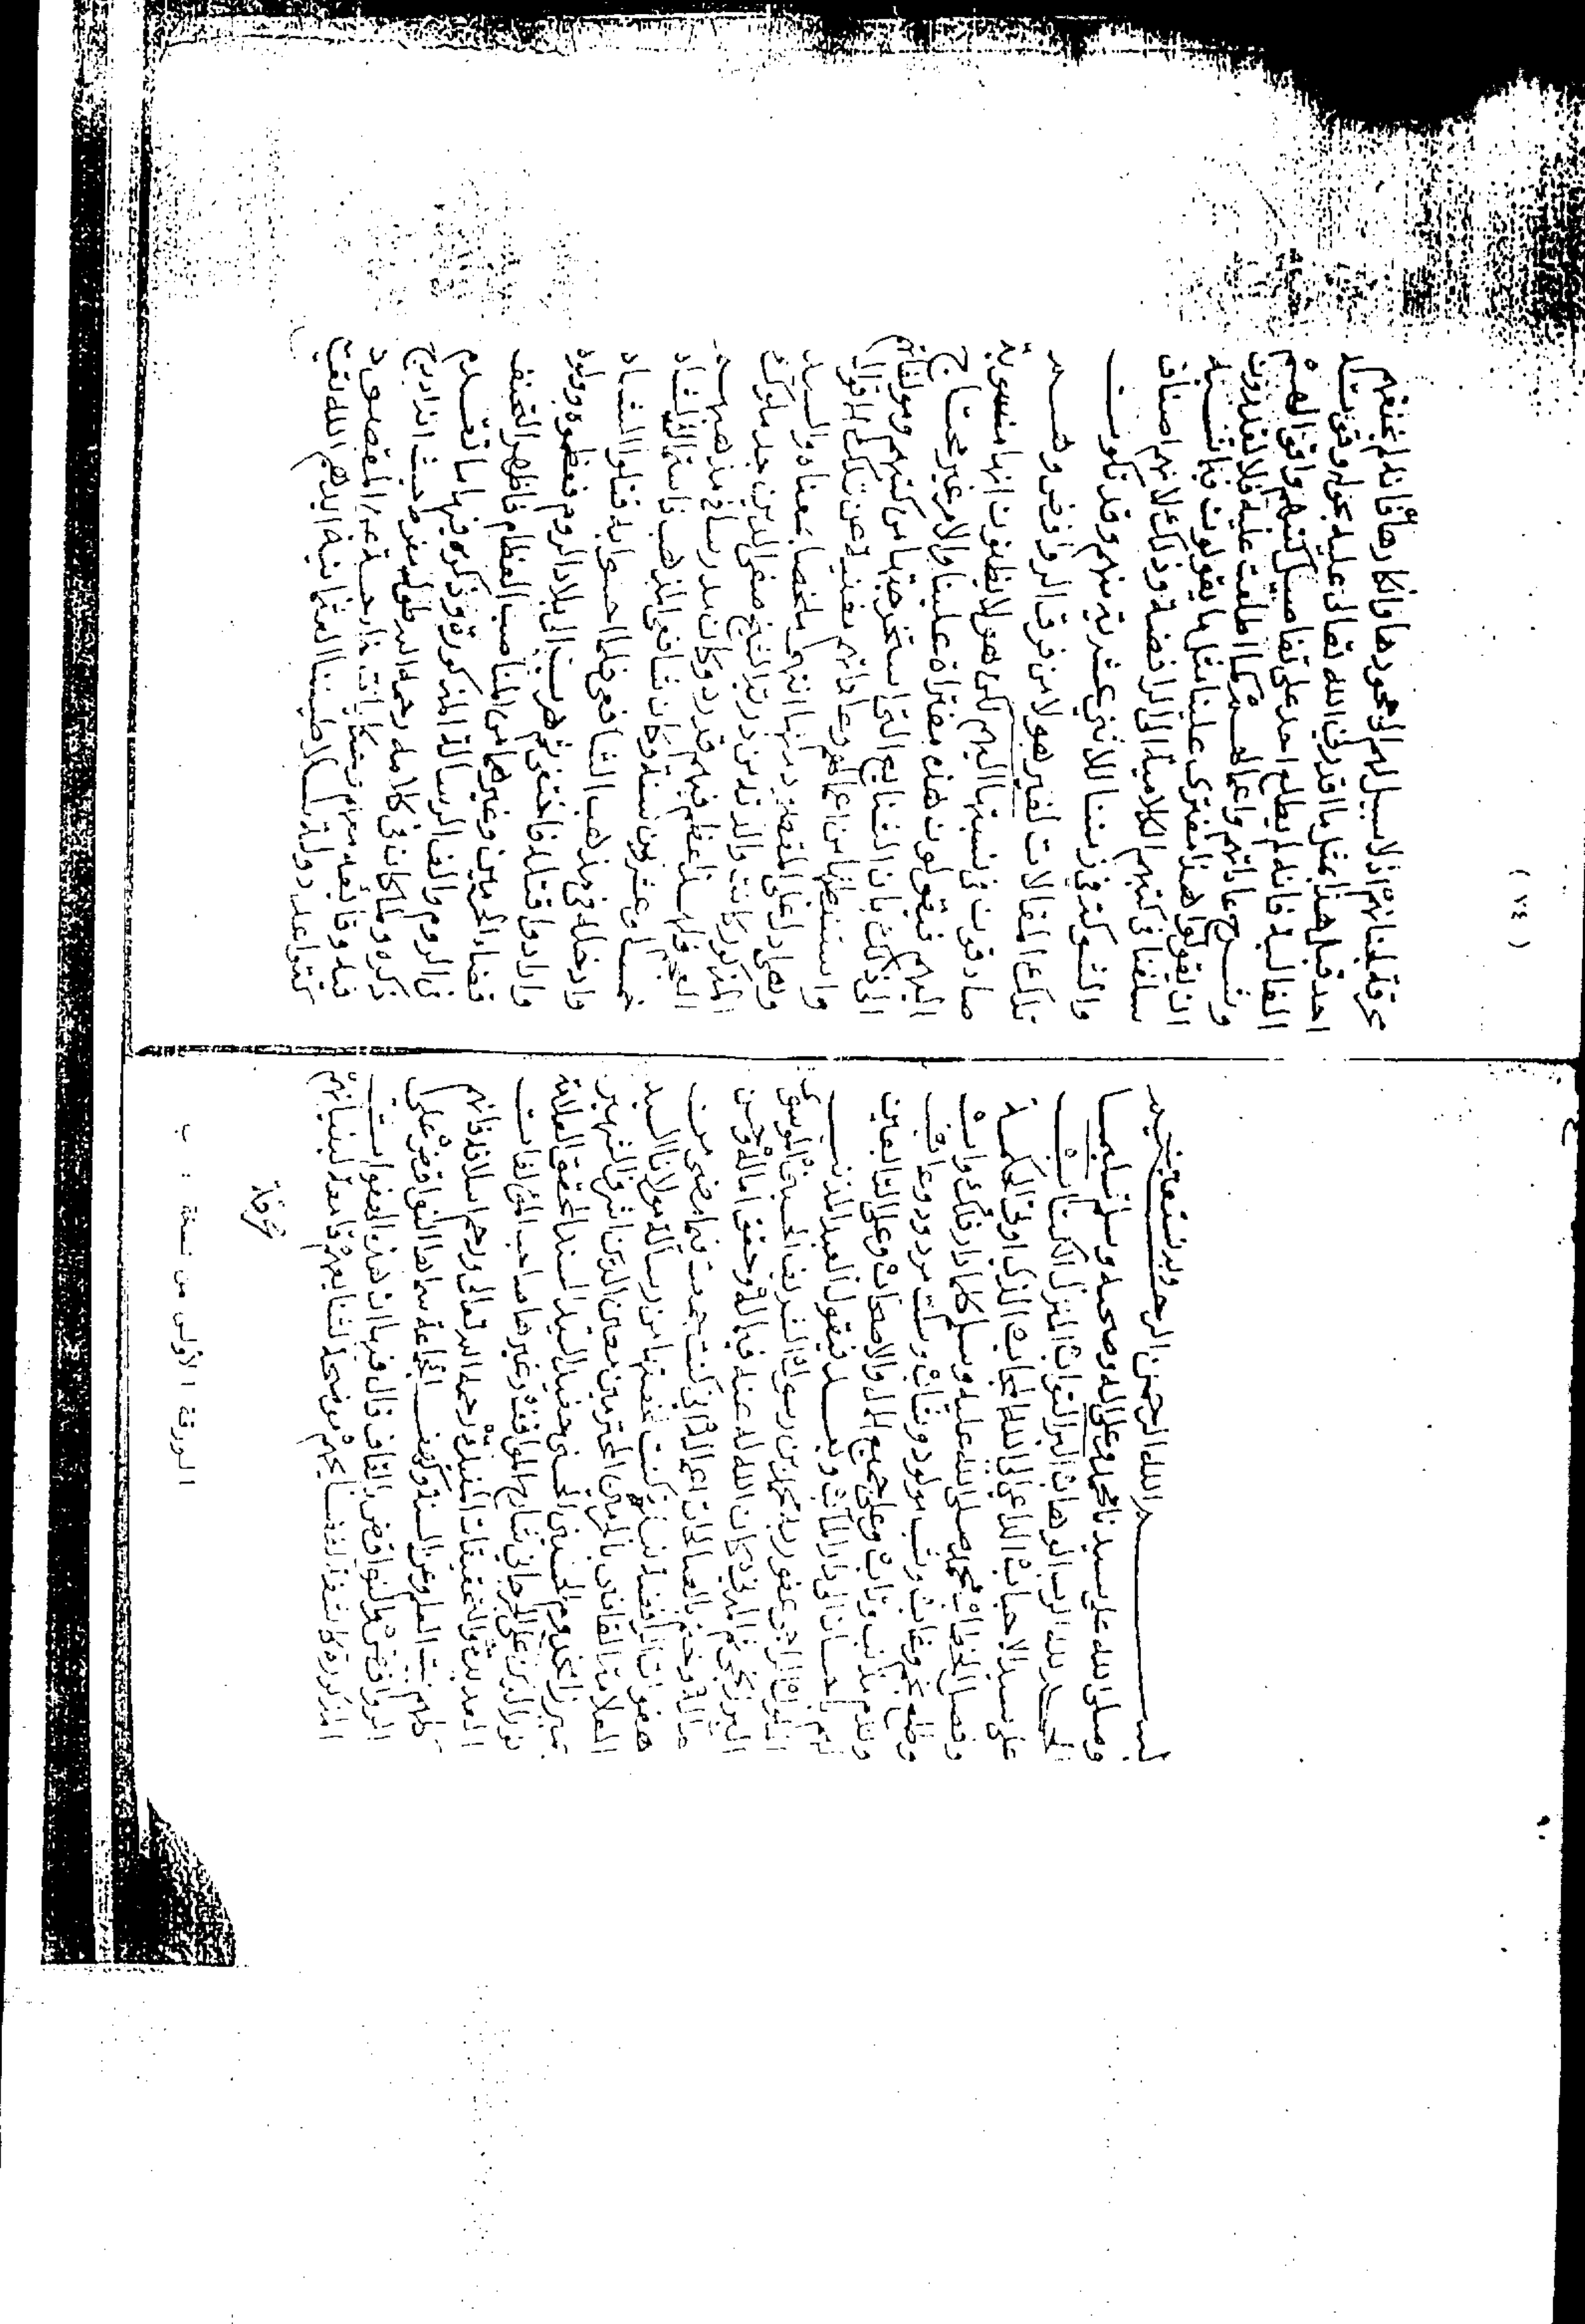 بسم الله الرحمن الرحيم وبه نستعين
وصلى الله على سيدنا محمد وعلى اله وصحبه وسلم تسليما
الحمد لله الرب الوهاب البر التواب المنزل الكتاب
على سيد الاحباب الداعي الى الله المجاب الذي اوتي الحكمة
وفصل الخطاب محمد صلى الله عليه وسلم كلما دار فلك واب
وطلع نجم وغاب وشب مولود وشاب وسكت مردود وعاب
وندم مذنب وتاب وعلى جميع الال والاصحاب وعلى التابعين
لهم باحسان الى دار المآب وبعد فيقول العبد المذنب
الراجي عفو ربه محمد بن رسول الشريف الحسيني الموسوي
البرزنجي ثم المدني كان الله له عنه فيما له وحقق اماله وحسن
ماله وختم بالصالحات اعماله اني كنت جمعت فيما مضى من
هفوات الرافضة كنت لخصتها من رسالة مولانا السيد
العلامة القاضي بالحرمين المحترمين معين الدين اشرف الشهير
بميرزا مخدوم الحسيني الحسني حفيد السيد السند المحقق العلامة
نور الدين علي الجرجاني شارح المواقف وغيرها صاحب المؤلفات
العديدة والتحقيقات المفيدة رحمه الله تعالى ورحم اسلافه فانهم
كلهم بيت العلم وعز السنة وكهف الجماعة سماها النواقض على
الروافض والنواقض بالقاف قال فيها ان هذه الهفوات
المذكورة كاشفة لفضايحهم موضحة لشنايعهم قامعة لبنيانهم
محرقة
الورقة الأولى من نسخة : ب
( ٧٤ )
محرقة لجنانهم اذ لا سبيل لهم الى جحودها وانكارها فانه لم يجتمع لهم
احد قبل هذا بمثل ما اقدرني الله تعالى عليه بحوله وقوته تلك
الغالبة فانه لم يطلع احد على تفاصيل كتبهم واقوالهم
وشرح عاداتهم واعمالهم كما اطلعت عليه فلا يقدرون
ان يقولوا هذا مفترى علينا مثل ما يقولون فيما تنسبه
سلفنا في كتبهم الكلامية الى الرافضة وذلك لانهم اصناف
والشوكة في زمننا للاثني عشرية منهم وقد تكون
تلك المقالات لغير هولاء من فرق الروافض وهم
صادقون في نسبتها اليهم لكن هولاء يظنون انها منسوبة
اليهم فيقولون هذه مفتراة علينا والامر غير محتاج
الى ذلك بان الشنايع التي استخرجتها من كتبهم ومولفاتهم
واستنبطتها من اعمالهم وعاداتهم مغنية عن تلك الاقوال
وهي ادل على المقصد منها انتهى ملخصا بمعناه والسيد
المذكور كانت والدته من ذرية الشيخ صفي الدين جد ملوك
العجم ولهذا عظم فيهم قدره وكان مدرسا في مذهبهم
خمسا وعشرين سنة وكان شافعي المذهب فاستماله الشاه
وادخله في مذهب الشافعي فلما احسوا به قتلوا الشاه
وارادوا قتله فاختفى ثم هرب الى بلاد الروم فعظموه وولوه
قضاء الحرمين وغيرهما من المناصب العظام فاظهر الحنيف
في الروم والف الرسالة المذكورة وذكر فيها ما تقدم
ذكره ولما كان في كلامه رحمه الله طول مفرط حيث ادرج
فيه وقائعه معهم وحكايات خارجة عن المقصود
كتواعد دولة سلاطيننا العثمانية ايدهم الله لقيت